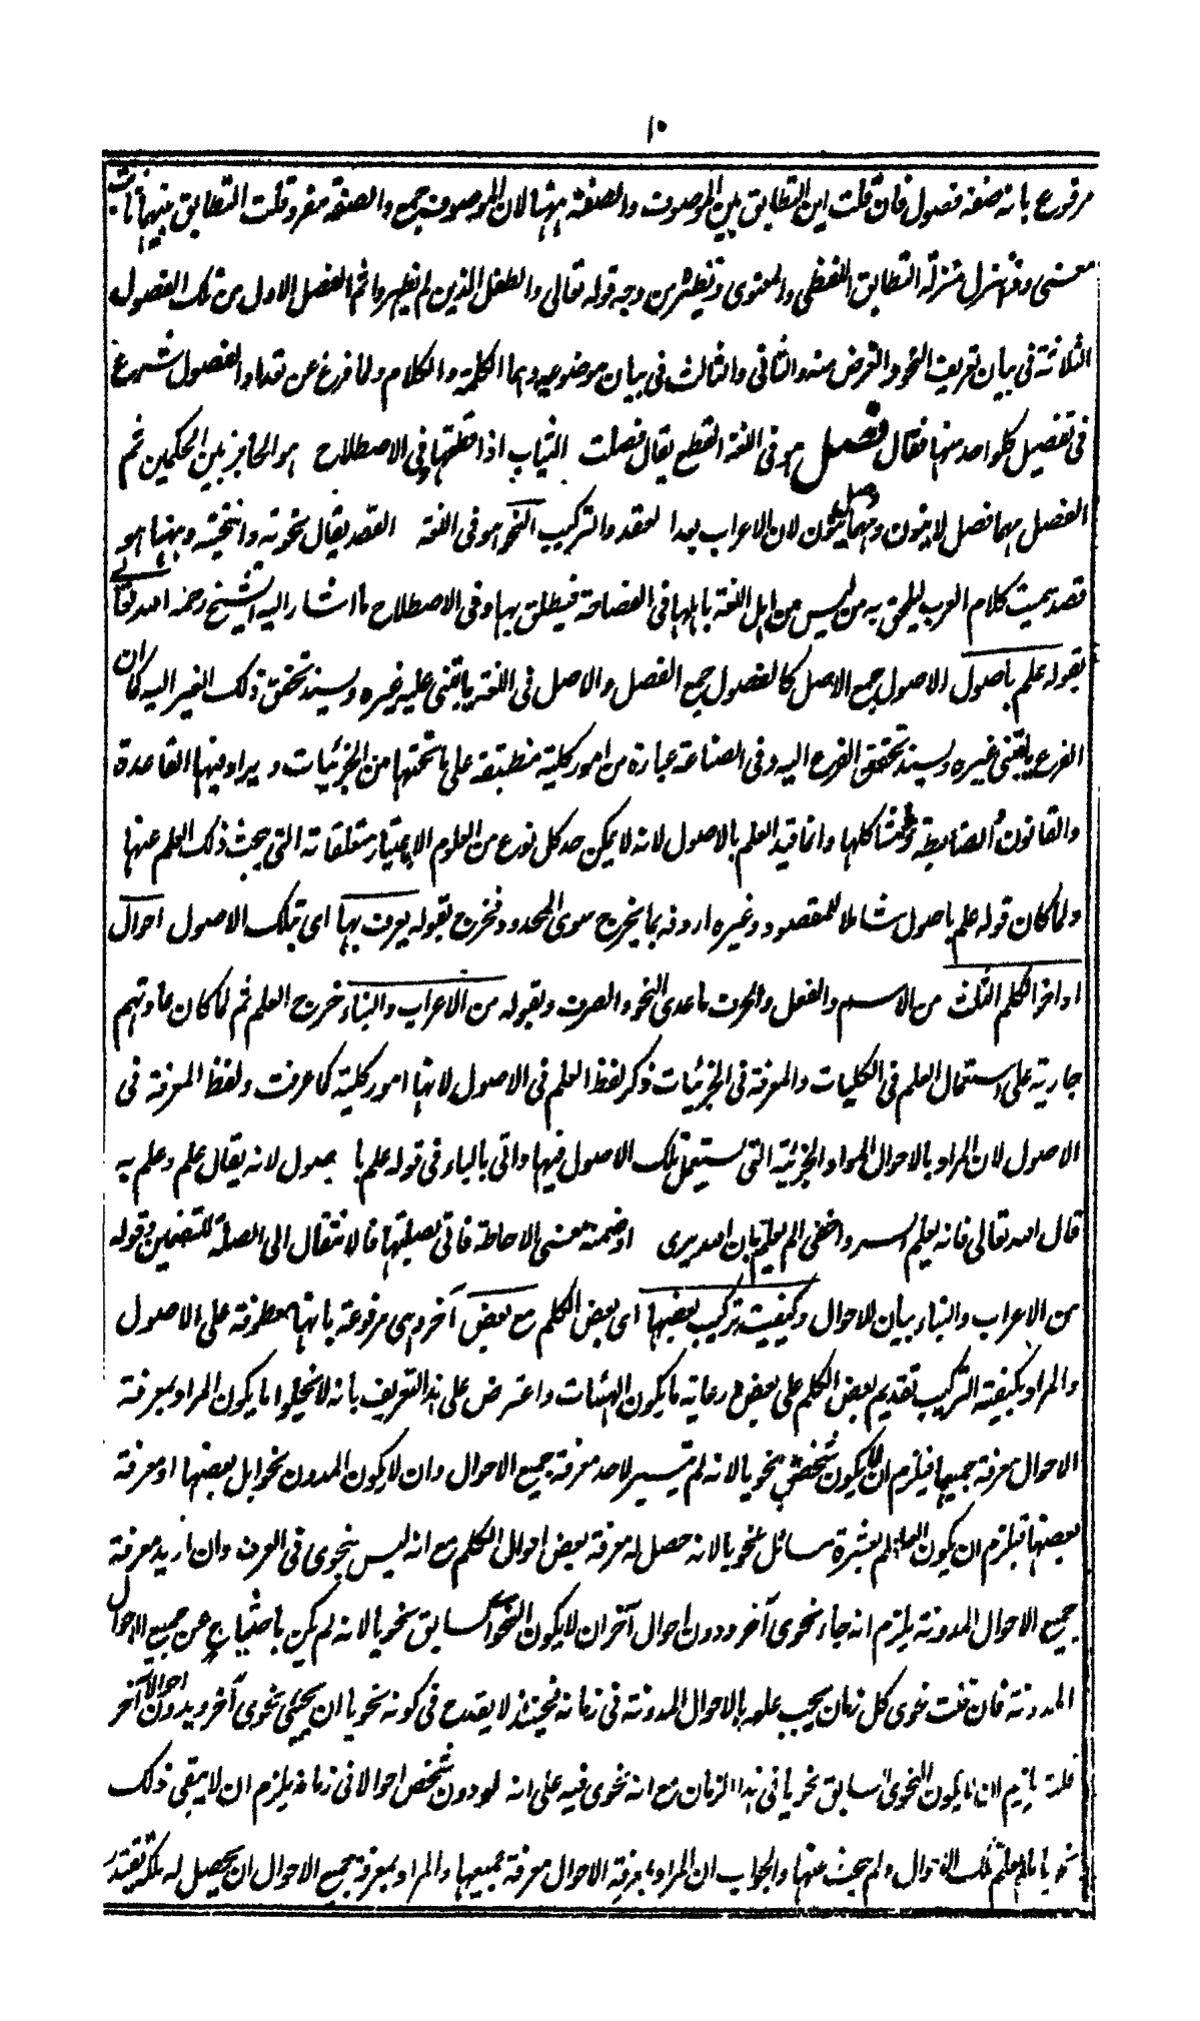 ١٠
مرفوع بانه صفة فصول فان قلت اين التطابق بين الموصوف والصفة ههنا لان الموصوف جمع والصفة مفرد قلت التطابق بينهما ثابت
معنى وقد نزل منزلة التطابق اللفظي والمعنوي ونظيره من وجه قوله تعالى والطفل الذين لم يظهروا ثم الفصل الاول من تلك الفصول
الثلاثة في بيان تعريف النحو والغرض منه والثاني والثالث في بيان موضوعيه وهما الكلمة والكلام ولما فرغ عن تعداد الفصول شرع
في تفصيل كلواحد منها فقال فصل هو في اللغة القطع يقال فصلت الثياب اذا قطعتها وفي الاصطلاح هو الحاجز بين الحكمين ثم
الفصل مهما فصل لاينون ومهما وصل ينون لان الاعراب بعد العقد والتركيب النحو هو في اللغة القصد يقال نحوته وانتحيته وههنا هو
قصد سمت كلام العرب ليلحق به من ليس من اهل اللغة باهلها في الفصاحة فينطلق بها وفي الاصطلاح ما اشار اليه الشيخ رحمه الله تعالى
بقوله علم باصول الاصول جمع الاصل كالفصول جمع الفصل والاصل في اللغة ما يبتنى عليه غيره ويستند تحقق ذلك الغير اليه كما ان
الفرع يبتنى غيره ويستند تحقق الفرع اليه وفي الصناعة عبارة من امور كلية منطبقة على ما تحتها من الجزئيات ويرادفها القاعدة
والقانون والضابطة وما شاكلها وانما قيد العلم بالاصول لانه لا يمكن حد كل نوع من العلوم الا باعتبار متعلقاته التي يبحث ذلك العلم عنها
ولما كان قوله علم باصول شاملا للمقصود وغيره اردفه بما يخرج سوى المحدود فخرج بقوله يعرف بها اى بتلك الاصول احوال
اواخر الكلم الثلث من الاسم والفعل والحرف ما عدى النحو والصرف وبقوله من الاعراب والبناء خرج العلم ثم لما كان عادتهم
جارية على استعمال العلم في الكليات والمعرفة في الجزئيات ذكر لفظ العلم في الاصول لانها امور كلية كما عرفت ولفظ المعرفة في
الاصول لان المراد بالاحوال المواد الجزئية التي يستعمل تلك الاصول فيها واتى بالباء في قوله علم با صول لانه يقال علم وعلم به
قال الله تعالى فانه يعلم السر واخفى الم يعلم بان الله يرى او ضمنه معنى الاحاطة فاتى بصلتها فالانتقال الى الصلة للتضمين وقوله
من الاعراب والبناء بيان لاحوال وكيفية تركيب بعضها اى بعض الكلم مع بعض آخر وهى مرفوعة بانها معطوفة على الاصول
والمراد بكيفية التركيب تقديم بعض الكلم على بعض ورعاية ما يكون الهئات واعترض على هذا التعريف بانه لا يخلوا ما يكون المراد بمعرفة
الاحوال معرفة جميعها فيلزم ان لا يكون شخص نحويا لانه لم يتيسر لاحد معرفة جميع الاحوال وان لا يكون المدون نحوا بل بعضها او معرفة
بعضها فيلزم ان يكون العالم بعشرة مسائل نحويا لانه حصل له معرفة بعض احوال الكلم مع انه ليس بنحوى في العرف وان اريد معرفة
جميع الاحوال المدونة يلزم انه جاء نحوى آخر ودون احوال آخر ان لا يكون النحوى السابق نحويا لانه لم يكن باحثا عن جميع الاحوال
المدونة فان قلت نحوى كل زمان يجب علمه بالاحوال المدونة في زمانه فحينئذ لا يقدح في كونه نحويا ان يجئى نحوى آخر ويدون احوالا آخر
قلت يلزم ان لا يكون النحوى السابق نحويا في هذا الزمان مع انه نحوى فيه على انه لو دون شخص احوالا في زمانه يلزم ان لا يبقى ذلك
نحويا ما لم يعلم تلك الاحوال ولم يبحث عنها والجواب ان المراد بمعرفة الاحوال معرفة جميعها والمراد بمعرفة جميع الاحوال ان يحصل له ملكة يقتدر